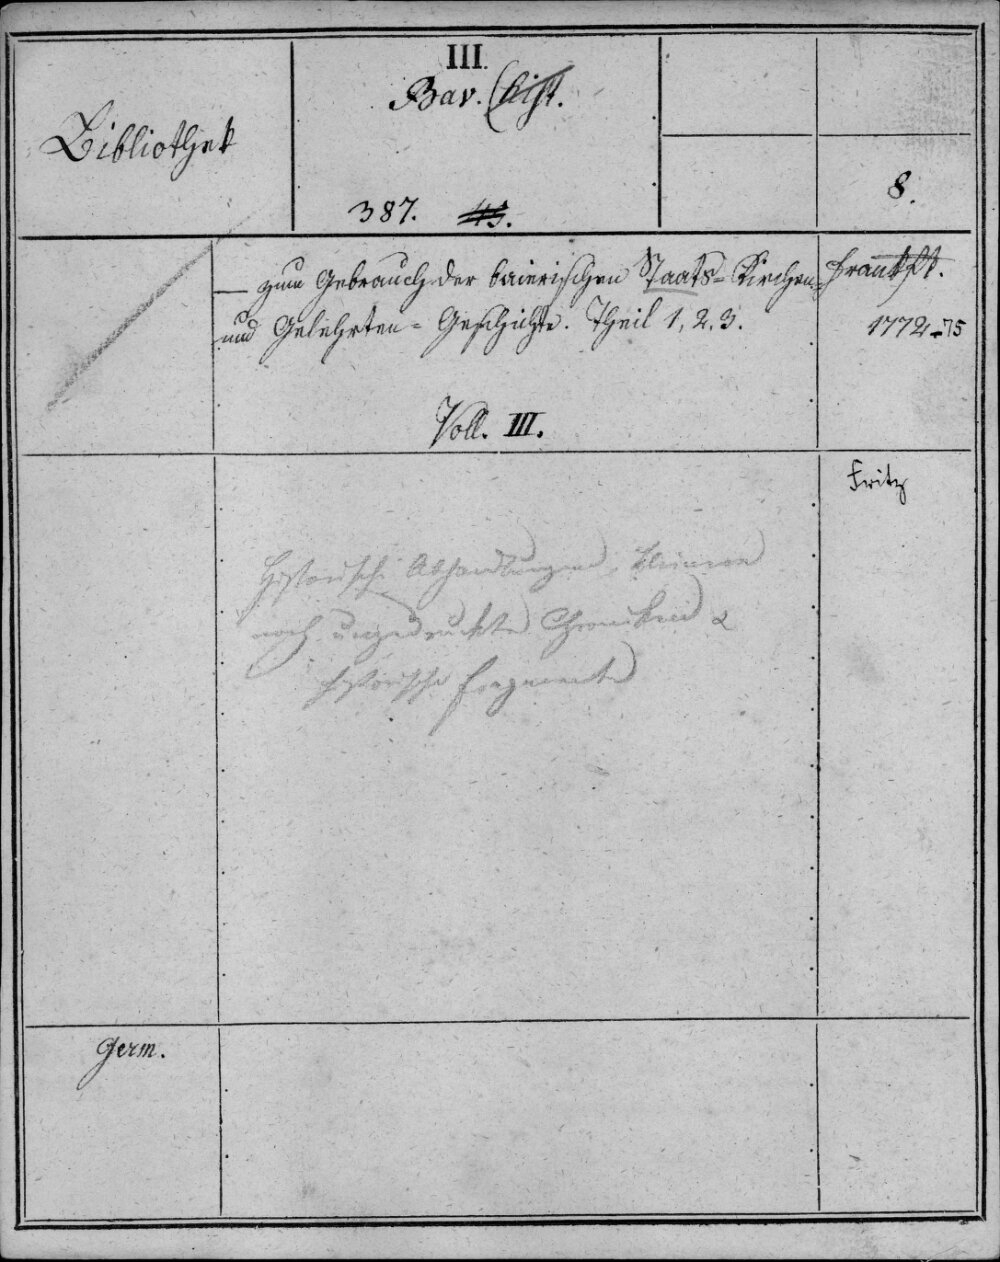 III.
Bav. (hist.
Bibliothek
8.
387. 43.
— zum Gebrauch der baierischen Staats- Kirchen-
und Gelehrten- Geschichte. Theil 1, 2, 3.
Frankft.
1772-75
Voll. III.
Fritz
Historische Abhandlungen, kleinere
noch ungedruckte Chroniken &
historische Fragmente
Germ.